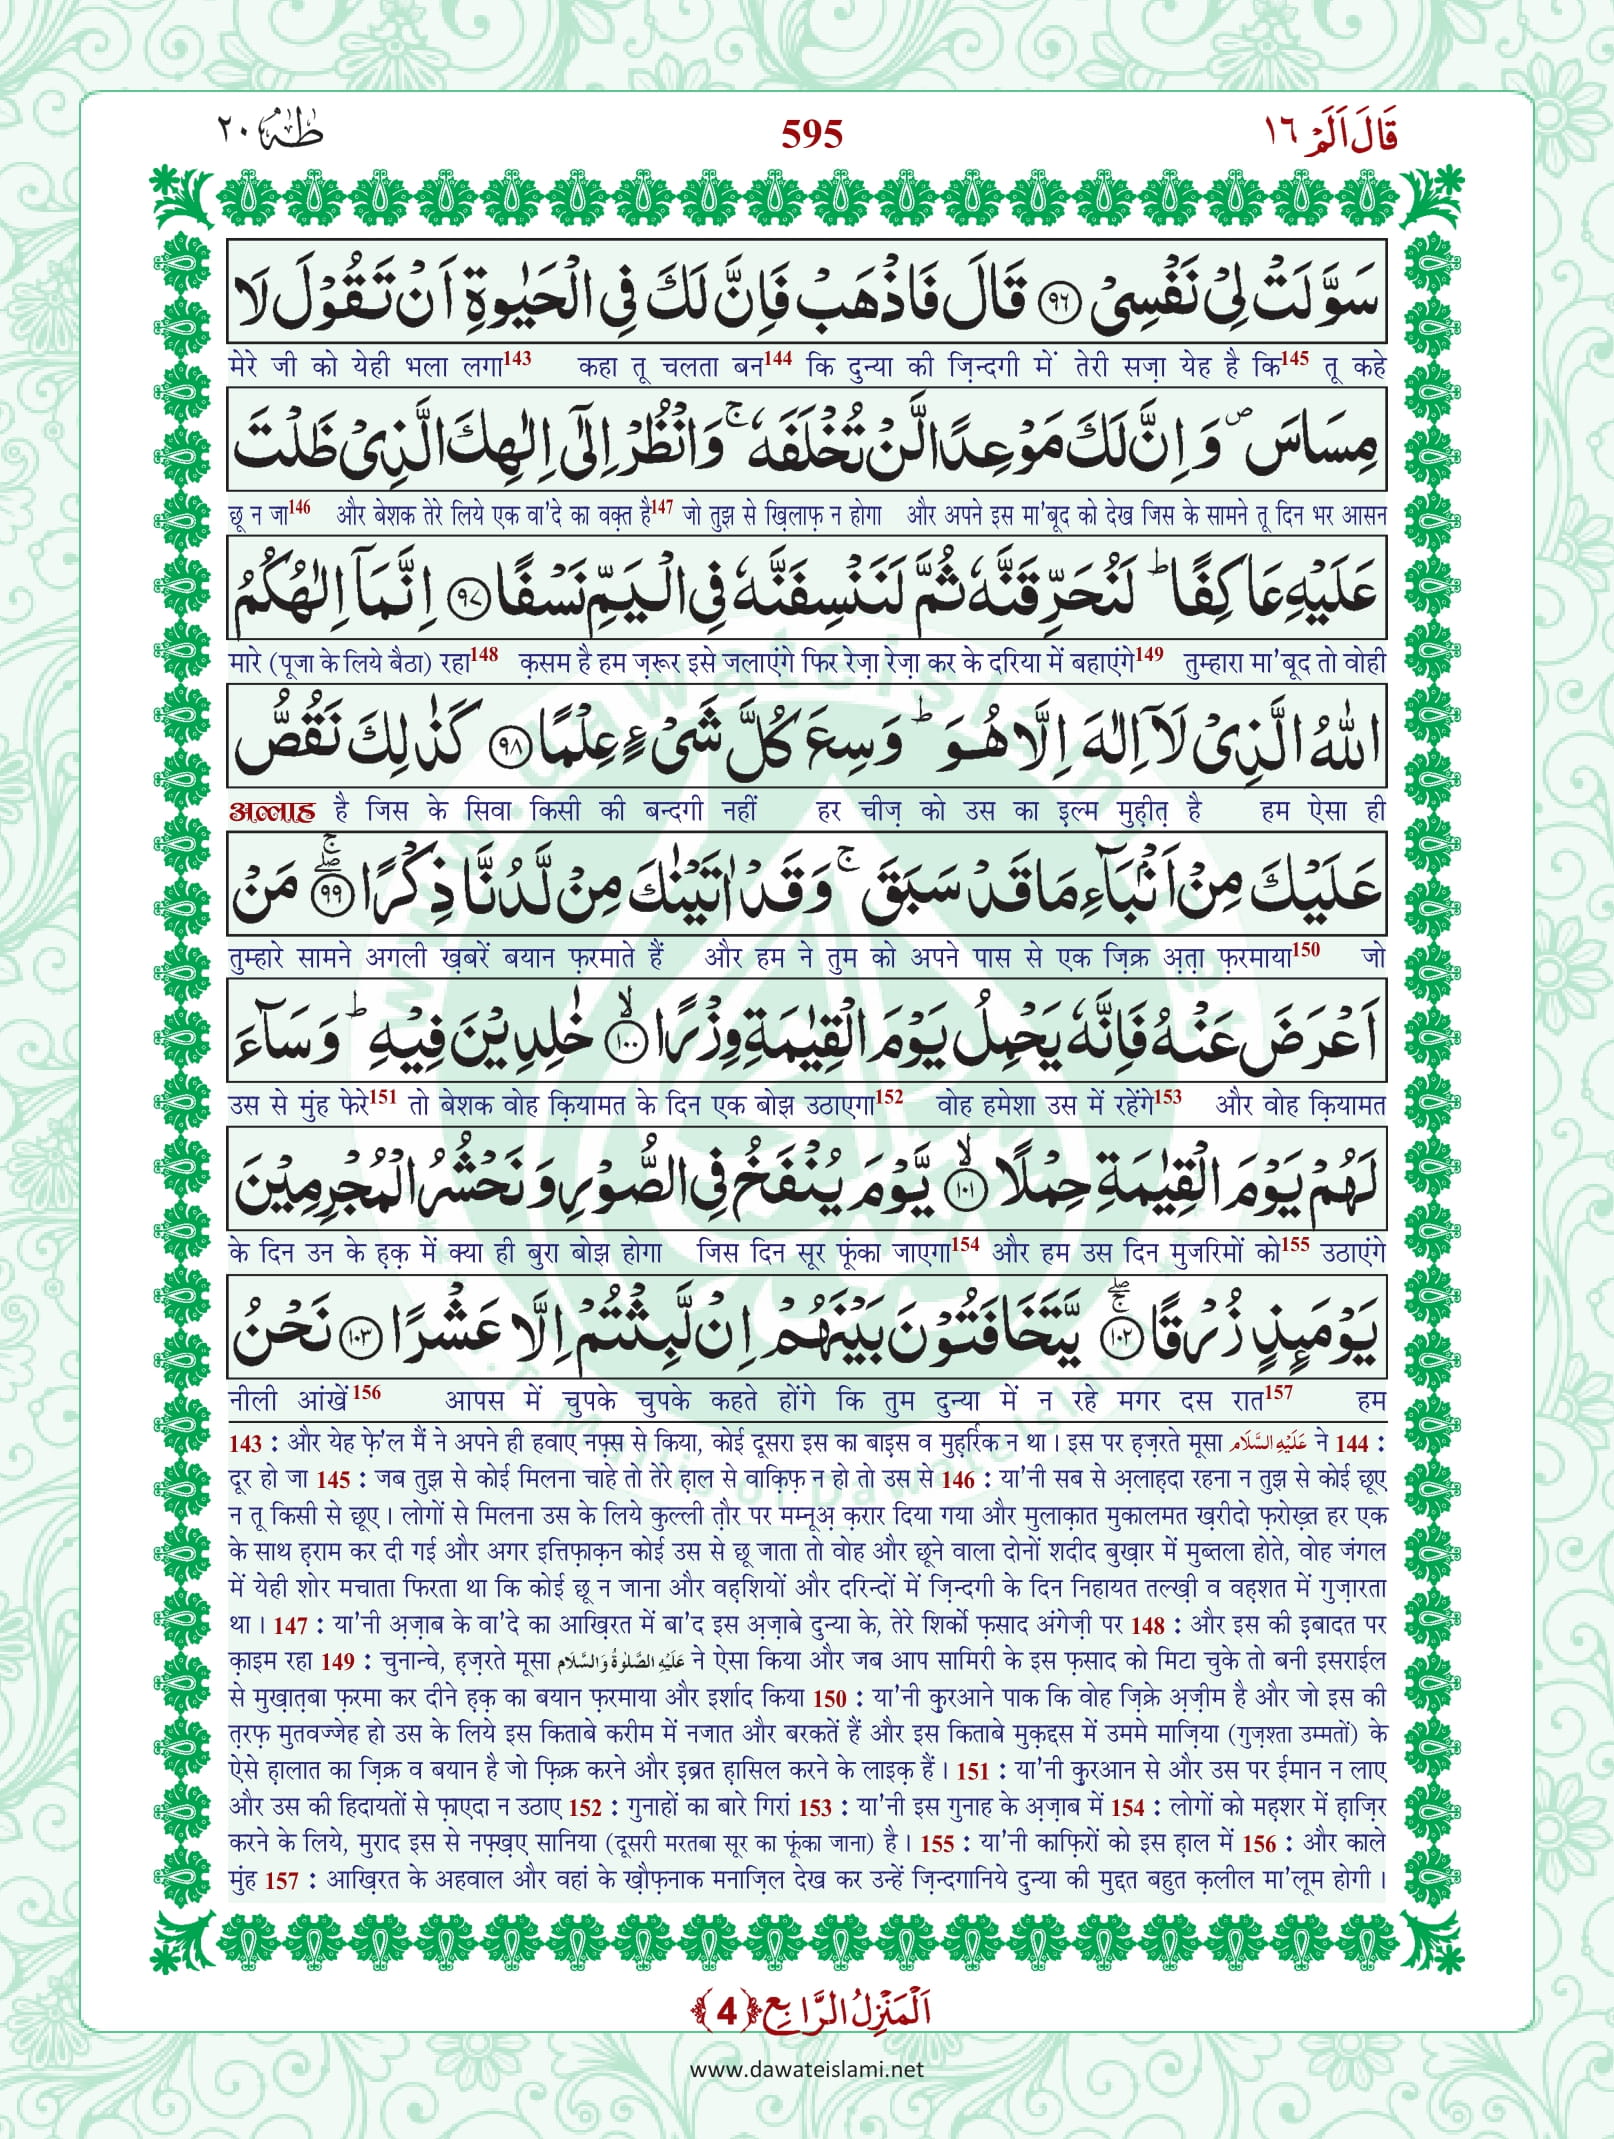 قَالَ اَلَمْ ١٦
595
طٰهٰ ٢٠
سَوَّلَتْ لِیْ نَفْسِیْ ﴿۹۶﴾ قَالَ فَاذْهَبْ فَاِنَّ لَكَ فِی الْحَیٰوةِ اَنْ تَقُوْلَ لَا
मेरे जी को येही भला लगा143 कहा तू चलता बन144 कि दुन्या की ज़िन्दगी में तेरी सज़ा येह है कि145 तू कहे
مِسَاسَ ۪ وَ اِنَّ لَكَ مَوْعِدًا لَّنْ تُخْلَفَهٗ ۚ وَ انْظُرْ اِلٰۤی اِلٰهِكَ الَّذِیْ ظَلْتَ
छू न जा146 और बेशक तेरे लिये एक वा'दे का वक़्त है147 जो तुझ से ख़िलाफ़ न होगा और अपने इस मा'बूद को देख जिस के सामने तू दिन भर आसन
عَلَیْهِ عَاكِفًا ؕ لَنُحَرِّقَنَّهٗ ثُمَّ لَنَنْسِفَنَّهٗ فِی الْیَمِّ نَسْفًا ﴿۹۷﴾ اِنَّمَاۤ اِلٰهُكُمُ
मारे (पूजा के लिये बैठा) रहा148 क़सम है हम ज़रूर इसे जलाएंगे फिर रेज़ा रेज़ा कर के दरिया में बहाएंगे149 तुम्हारा मा'बूद तो वोही
اللّٰهُ الَّذِیْ لَاۤ اِلٰهَ اِلَّا هُوَ ؕ وَسِعَ كُلَّ شَیْءٍ عِلْمًا ﴿۹۸﴾ كَذٰلِكَ نَقُصُّ
अल्लाह है जिस के सिवा किसी की बन्दगी नहीं हर चीज़ को उस का इल्म मुहीत़ है हम ऐसा ही
عَلَیْكَ مِنْ اَنْۢبَآءِ مَا قَدْ سَبَقَ ۚ وَ قَدْ اٰتَیْنٰكَ مِنْ لَّدُنَّا ذِكْرًا ﴿ۖۚ۹۹﴾ مَنْ
तुम्हारे सामने अगली ख़बरें बयान फ़रमाते हैं और हम ने तुम को अपने पास से एक ज़िक्र अ़त़ा फ़रमाया150 जो
اَعْرَضَ عَنْهُ فَاِنَّهٗ یَحْمِلُ یَوْمَ الْقِیٰمَةِ وِزْرًا ﴿ۙ۱۰۰﴾ خٰلِدِیْنَ فِیْهِ ؕ وَ سَآءَ
उस से मुंह फेरे151 तो बेशक वोह क़ियामत के दिन एक बोझ उठाएगा152 वोह हमेशा उस में रहेंगे153 और वोह क़ियामत
لَهُمْ یَوْمَ الْقِیٰمَةِ حِمْلًا ﴿ۙ۱۰۱﴾ یَّوْمَ یُنْفَخُ فِی الصُّوْرِ وَ نَحْشُرُ الْمُجْرِمِیْنَ
के दिन उन के ह़क़ में क्या ही बुरा बोझ होगा जिस दिन सूर फूंका जाएगा154 और हम उस दिन मुजरिमों को155 उठाएंगे
یَوْمَىٕذٍ زُرْقًا ﴿ۚۖ۱۰۲﴾ یَّتَخَافَتُوْنَ بَیْنَهُمْ اِنْ لَّبِثْتُمْ اِلَّا عَشْرًا ﴿۱۰۳﴾ نَحْنُ
नीली आंखें156 आपस में चुपके चुपके कहते होंगे कि तुम दुन्या में न रहे मगर दस रात157 हम
143 : और येह फे़'ल मैं ने अपने ही हवाए नफ़्स से किया, कोई दूसरा इस का बाइस व मुह़र्रिक न था। इस पर ह़ज़रते मूसा عَلَيْهِ السَّلَام ने 144 :
दूर हो जा 145 : जब तुझ से कोई मिलना चाहे तो तेरे ह़ाल से वाक़िफ़ न हो तो उस से 146 : या'नी सब से अ़लाह़दा रहना न तुझ से कोई छूए
न तू किसी से छूए। लोगों से मिलना उस के लिये कुल्ली त़ौर पर मम्नूअ़ क़रार दिया गया और मुलाक़ात मुकालमत ख़रीदो फ़रोख़्त हर एक
के साथ ह़राम कर दी गई और अगर इत्तिफ़ाक़न कोई उस से छू जाता तो वोह और छूने वाला दोनों शदीद बुख़ार में मुब्तला होते, वोह जंगल
में येही शोर मचाता फिरता था कि कोई छू न जाना और वह़शियों और दरिन्दों में ज़िन्दगी के दिन निहायत तल्ख़ी व वह़शत में गुज़ारता
था। 147 : या'नी अ़ज़ाब के वा'दे का आख़िरत में बा'द इस अ़ज़ाबे दुन्या के, तेरे शिर्को फ़साद अंगेज़ी पर 148 : और इस की इबादत पर
क़ाइम रहा 149 : चुनान्चे, ह़ज़रते मूसा عَلَيْهِ الصَّلٰوةُ وَالسَّلَام ने ऐसा किया और जब आप सामिरी के इस फ़साद को मिटा चुके तो बनी इसराईल
से मुख़ात़बा फ़रमा कर दीने ह़क़ का बयान फ़रमाया और इर्शाद किया 150 : या'नी क़ुरआने पाक कि वोह ज़िक्रे अ़ज़ीम है और जो इस की
त़रफ़ मुतवज्जेह हो उस के लिये इस किताबे करीम में नजात और बरकतें हैं और इस किताबे मुक़द्दस में उममे माज़िया (गुज़श्ता उम्मतों) के
ऐसे ह़ालात का ज़िक्र व बयान है जो फ़िक्र करने और इब्रत ह़ासिल करने के लाइक़ हैं। 151 : या'नी क़ुरआन से और उस पर ईमान न लाए
और उस की हिदायतों से फ़ाएदा न उठाए 152 : गुनाहों का बारे गिरां 153 : या'नी इस गुनाह के अ़ज़ाब में 154 : लोगों को मह़शर में ह़ाज़िर
करने के लिये, मुराद इस से नफ़्ख़ए सानिया (दूसरी मरतबा सूर का फूंका जाना) है। 155 : या'नी काफ़िरों को इस ह़ाल में 156 : और काले
मुंह 157 : आख़िरत के अहवाल और वहां के ख़ौफ़नाक मनाज़िल देख कर उन्हें ज़िन्दगानिये दुन्या की मुद्दत बहुत क़लील मा'लूम होगी।
اَلْمَنْزِلُ الرَّابِع ﴿4﴾
www.dawateislami.net